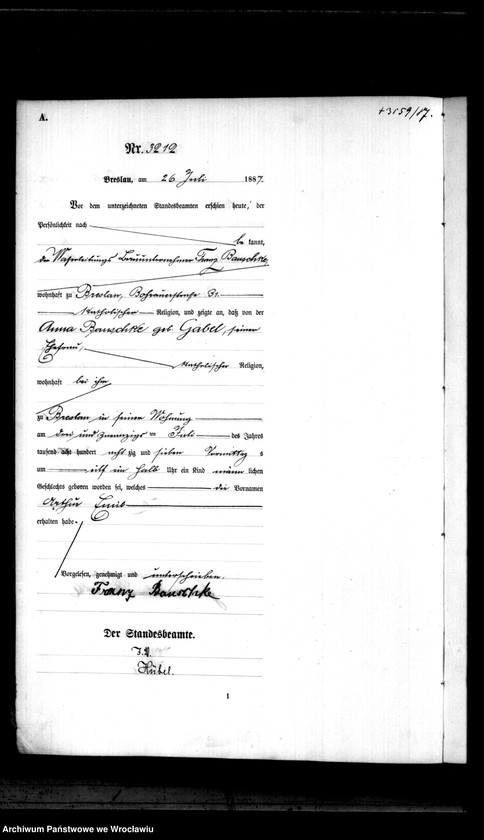 A.
+3159/87.
Nr. 3212
Breslau, am 26 Juli 1887.
Vor dem unterzeichneten Standesbeamten erschien heute, der
Persönlichkeit nach
be kannt,
der Wasserleitungs Bauunternehmer Franz Bauschke,
wohnhaft zu Breslau, Bohrauerstraße 31.
katholischer Religion, und zeigte an, daß von der
Anna Bauschke geb Gabel, seiner
Ehefrau,
katholischer Religion,
wohnhaft bei ihm,
zu Breslau in seiner Wohnung
am drei und zwanzigs ten Juli des Jahres
tausend acht hundert acht zig und sieben Vormittag s
um elf ein halb Uhr ein Kind männ lichen
Geschlechts geboren worden sei, welches die Vornamen
Arthur Emil
erhalten habe.
Vorgelesen, genehmigt und unterschrieben.
Franz Bauschke
Der Standesbeamte.
I.V.
Hübel.
1
Archiwum Państwowe we Wrocławiu